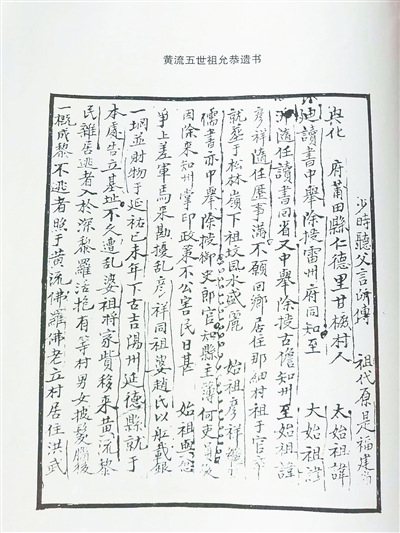 黄流五世祖允恭遗书
少時聽父言所傳 祖代原是福建
興化 府莆田縣仁德里甘椒村人 太始祖諱
迪讀書中舉除授雷州府同知至 大始祖諱
沂隨任讀書同省又中舉除授古儋知州至始祖諱
彦祥隨任歴事滿不願回鄉居住那細村祖于官
就塟于松林嶺下祖坟風水盛麗 始祖彦祥
儒書亦中舉除授御史即官知縣主簿何吏
因除來知州掌印政策不公害民日甚 始祖與
爭上差軍馬呆勘擾乱彦祥同祖婆趙氏以船載銀
一塥並財物于延祐己未年下古吉陽州延德縣就于
本處告立基址不久遭乱婆祖將家貲移來黄流黎
民雜居逃者入於深黎羅活抱有等村男女披髮
一概成黎不逃者照于黄流佛羅佛老立村居住洪武